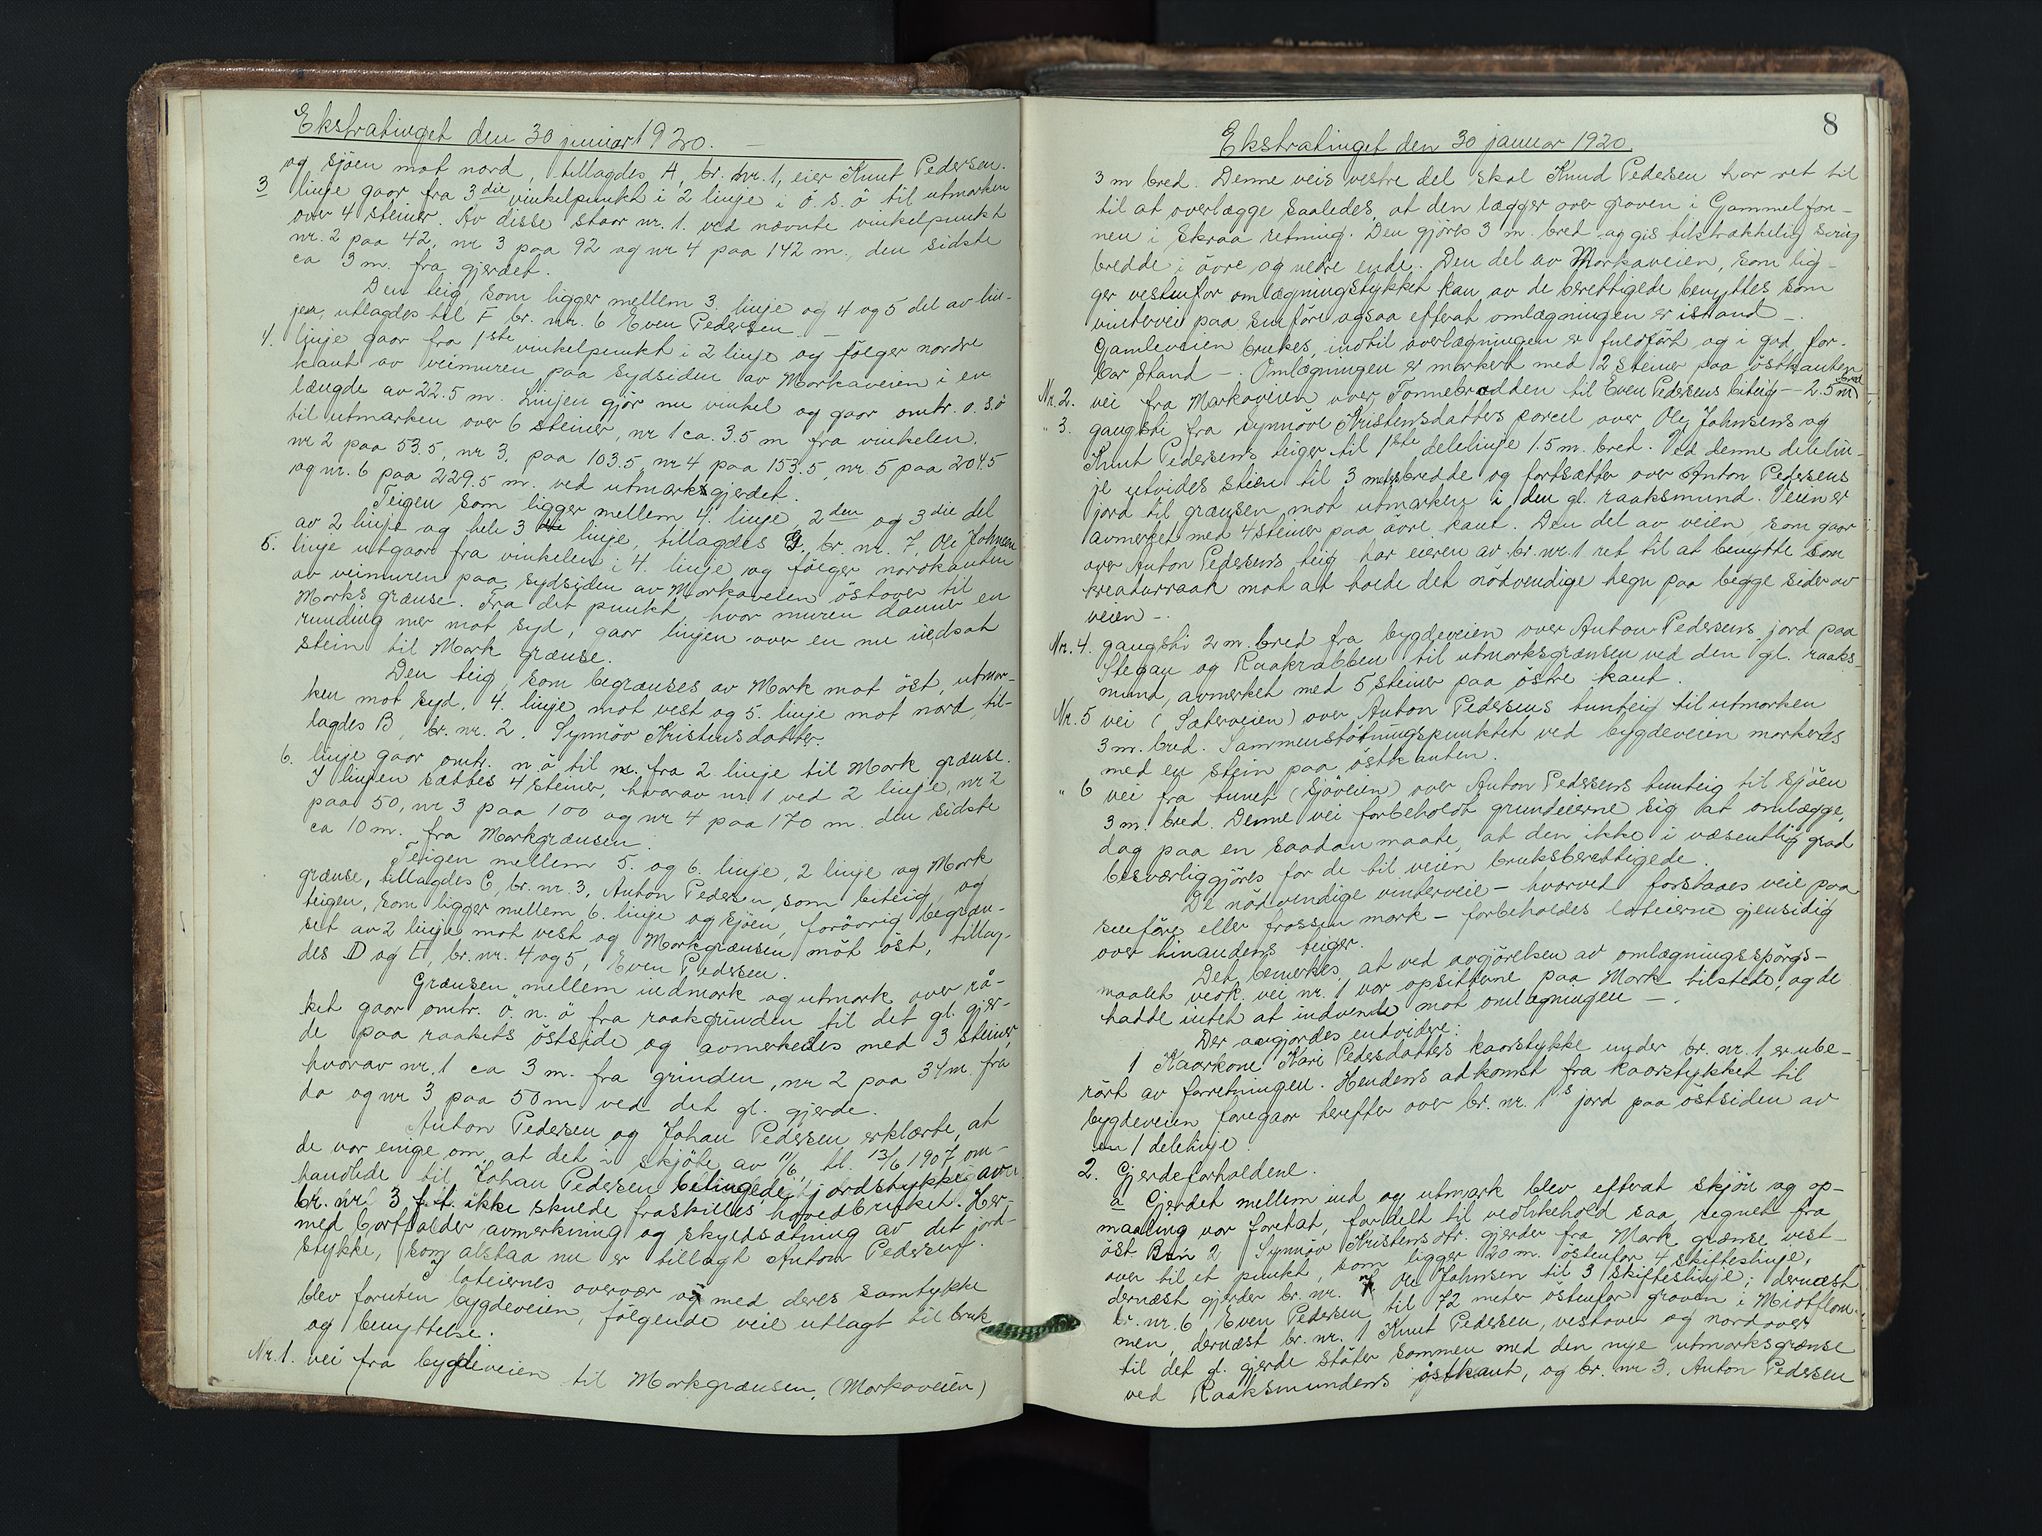 Ekstratinget den 30 januar 1920.
og sjøen mot nord, tillagdes A, br. nr. 1, eier Knut Pedersen.
3 linje gaar fra 3die vinkelpunkt i 2 linje i ö. s. ö til utmarken
over 4 steiner. Av disse staar nr. 1. ved nævnte vinkelpunkt
nr. 2 paa 42, nr 3 paa 92 og nr 4 paa 142 m., den sidste
ca 3 m. fra gjerdet.
Den teig, som ligger mellem 3. linje og 4 og 5 del av lin-
jen, utlagdes til F br. nr. 6 Even Pedersen.
4. linje gaar fra 1ste vinkelpunkt i 2 linje og følger nordre
kant av veimuren paa sydsiden av Markaveien i en
længde av 22.5 m. Linjen gjør nu vinkel og gaar omtr. ö. s. ö
til utmarken over 6 steiner, nr 1 ca. 3.5 m fra vinkelen.
nr 2 paa 53.5, nr 3. paa 103.5, nr 4 paa 153.5, nr. 5 paa 204.5
og nr. 6 paa 229.5 m. ved utmarksgjerdet.
Teigen som ligger mellem 4. linje, 2den og 3die del
av 2 linje og hele 3 linje, tillagdes G, br. nr. 7, Ole Johnsen
5. linje utgaar fra vinkelen i 4. linje og følger nordkanten
av veimuren paa sydsiden av Markaveien östover til
Marks grænse. Fra det punkt hvor muren danner en
runding mer mot syd, gaar linjen over en nu nedsat
stein til Mark grænse.
Den teig, som begrænses av Mark mot öst, utmar-
ken mot syd, 4. linje mot vest og 5. linje mot nord, til-
lagdes B, br. nr. 2. Synnöv Kristensdatter.
6. linje gaar omtr. n ö til n. fra 2. linje til Mark grænse.
I linjen sættes 4 steiner, hvorav nr 1 ved 2 linje, nr 2
paa 50, nr 3 paa 100 og nr 4 paa 170 m. den sidste
ca 10 m. fra Markgrænsen.
Teigen mellem 5. og 6. linje, 2 linje og Mark
grænse, tillagdes C, br. nr. 3, Anton Pedersen, som biteig, og
teigen, som ligger mellem 6. linje og sjöen, forövrig begræn-
set av 2 linje mot vest og Markgrænsen mot öst, tillag-
des D og E, br. nr. 4 og 5, Even Pedersen.
Grænsen mellem indmark og utmark over rå-
ket gaar omtr. ö. n. ö fra raakgrinden til det gl. gjer-
de paa raakets östside og avmerkedes med 3 steiner,
hvorav nr. 1 ca 3 m. fra grinden, nr 2 paa 34 m. fra
da og nr 3 paa 50 m ved det gl. gjerde.
Anton Pedersen og Johan Pedersen erklærte, at
de var enige om, at det i skjöte av 11/6, tl. 13/6 1907 om-
handlede til Johan Pedersen betingede jordstykke av
br. nr. 3 f. t. ikke skulde fraskilles hovedbruket. Her-
med bortfalder avmerkning og skyldsætning av det jord-
stykke, som altsaa nu er tillagt Anton Pedersen.
I loteiernes overvær og med deres samtykke
blev foruten bygdeveien, følgende veie utlagt til bruk
og benyttelse.
Nr. 1. vei fra bygdeveien til Markgrænsen, (Markaveien)
8
Ekstratinget den 30 januar 1920.
3 m bred. Denne veis vestre del skal Knud Pedersen har ret til
til at overlægge saaledes, at den lægger over graven i Gammelfon-
nen i skraa retning. Den gjöres 3 m. bred og gis tilstrækkelig sving
bredde i övre og nedre ende. Den del av Markaveien, som lig-
ger vestenfor omlægningstykket kan av de berettigede benyttes som
vintervei paa sneföre ogsaa efterat omlægningen er istand -.
Gamleveien brukes, indtil overlægningen er fuldfört og i god for-
bar stand -. Omlægningen er merket med 2 steiner paa östkanten
Nr. 2. vei fra Markaveien over Tønnebradden til Even Pedersens biteig - 2.5 m bred
" 3. gangsti fra Synnöve Kristensdatters parcel over Ole Johnsens og
Knut Pedersens teiger til 1ste delelinje 1.5 m. bred. Ved denne delelin-
je utvides stien til 3 metersbredde og fortsætter over Anton Pedersens
jord til grænsen mot utmarken i den gl. raaksmund. Veien er
avmerket med 4 steiner paa övre kant. Den del av veien, som gaar
over Anton Pedersens teig har eieren av br. nr. 1 ret til at benytte som
kreaturraak mot at holde det nödvendige hegn paa begge sider av
veien -.
Nr. 4. gangsti 2 m. bred fra bygdeveien over Anton Pedersens jord paa
Stegan og Raakrabben til utmarksgrænsen ved den gl. raaks-
mund, avmerket med 5 steiner paa östre kant.
Nr. 5 vei (Sæterveien) over Anton Pedersens tunteig til utmarken
3 m. bred. Sammenstötningspunktet ved bygdeveien markeres
med en stein paa östkanten.
" 6 vei fra tunet (sjöveien) over Anton Pedersens tunteig til sjöen
3 m. bred. Denne vei forbeholdt grundeierne sig at omlægge,
dog paa en saadan maate, at den ikke i væsentlig grad
besværliggjöres for de til veien bruksberettigede.
De nödvendige vinterveie - hvorved forstaaes veie paa
sneföre eller frossen mark - forbeholdes loteierne gjensidig
over hinandens teiger.
Det bemerkes, at ved avgjörelsen av omlægningsspörgs-
maalet vedk. vei nr. 1 var opsitterne paa Mark tilstede, og de
hadde intet at indvende mot omlægningen -.
Der avgjordes endvidere:
1 Kaarkone Kari Pedersdatters kaarstykke under br. nr. 1 er ube-
rört av forretningen. Hendes adkomst fra kaarstykket til
bygdeveien foregaar herefter over br. nr. 1's jord paa östsiden av
1 delelinje.
2. Gjerdeforholdene.
a Gjerdet mellem ind og utmark blev efterat skjön og op-
maaling var foretat, fordelt til vedlikehold saa, regnet fra
öst. Br. nr 2 Synnöv Kristensdtr. gjerder fra Mark grænse vest-
over til et punkt, som ligger 20 m. östenfor 4 skifteslinje,
dernæst gjerder br. nr. 7 Ole Johnsen til 3 skifteslinje; dernæst
br. nr. 6 Even Pedersen til 72 meter östenfor graven i Midtflom-
men, dernæst br. nr. 1 Knut Pedersen, vestover og nordover
til det gl. gjerde stöter sammen med den nye utmarksgrænse
ved Raaksmundens östkant, og br. nr 3. Anton Pedersen